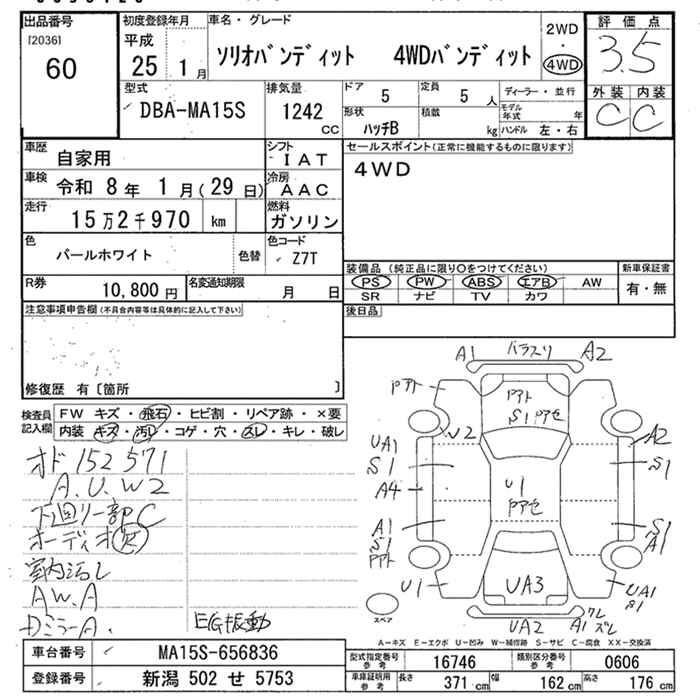 出品番号 初度登録年月 車名・グレード 2WD 評価点
[2036] 平成 ・ 3.5
60 25年 1月 ソリオバンディット 4WDバンディット 4WD
型式 排気量 ドア 5 定員 5人 ディーラー・並行 外装 内装
DBA-MA15S 1242cc 形状 ハッチB 積載 kg モデル年式 年 C C
ハンドル 左・右
車歴 自家用 シフト IAT セールスポイント(正常に機能するものに限ります)
車検 令和 8年 1月(29日) 冷房 AAC 4WD
走行 15万2千970 km 燃料 ガソリン
色 パールホワイト 色替 色コード Z7T
装備品 (純正品に限り○をつけてください) 新車保証書
R券 10,800円 名変通知期限 月 日 PS PW ABS エアB AW 有・無
SR ナビ TV カワ
注意事項申告欄(不具合内容等は具体的に記入して下さい) 後日品
修復歴 有〔箇所 〕
検査員記入欄 FW キズ・飛石・ヒビ割・リペア跡・×要
内装・キズ・汚レ・コゲ・穴・スレ・キレ・破レ
オド152571
A.U.W2
下回リ一部C
オーディオ欠
室内汚レ
AW.A
Dミラー A.
EG振動
A1 バラスリ A2
Pアト
Pアト
S1 Pアセ
W2
UA1
S1
A4
A1
S1
Pアト
U1
U1
Pアセ
A2
S1
S1
A1
UA1
S1
UA3
UA2
A1 ワレ
ズレ
スペア
A-キズ E-エクボ U-凹み W-補修跡 S-サビ C-腐食 XX-交換済
車台番号 MA15S-656836 型式指定番号 参考 16746 類別区分番号 参考 0606
登録番号 新潟 502 せ 5753 車庫証明用 参考 長さ 371cm 幅 162cm 高さ 176cm